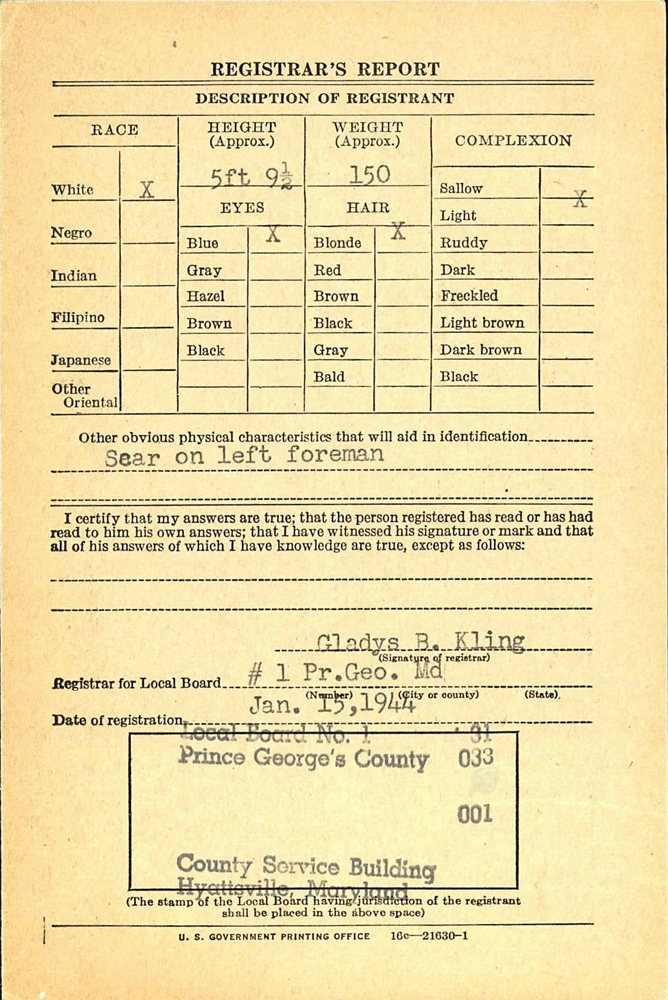 REGISTRAR'S REPORT
DESCRIPTION OF REGISTRANT
RACE
HEIGHT
(Approx.)
WEIGHT
(Approx.)
COMPLEXION
5ft 9½
150
White X
Negro
Indian
Filipino
Japanese
Other
Oriental
EYES
Blue X
Gray
Hazel
Brown
Black
HAIR
Blonde X
Red
Brown
Black
Gray
Bald
Sallow
X
Light
Ruddy
Dark
Freckled
Light brown
Dark brown
Black
Other obvious physical characteristics that will aid in identification
Scar on left foreman
I certify that my answers are true; that the person registered has read or has had
read to him his own answers; that I have witnessed his signature or mark and that
all of his answers of which I have knowledge are true, except as follows:
Gladys B. Kling
(Signature of registrar)
Registrar for Local Board # 1 Pr.Geo. Md
(Number) (City or county) (State)
Date of registration Jan. 15,1944
Local Board No. 1 31
Prince George's County 033
001
County Service Building
Hyattsville, Maryland
(The stamp of the Local Board having jurisdiction of the registrant
shall be placed in the above space)
U. S. GOVERNMENT PRINTING OFFICE 16c—21630-1